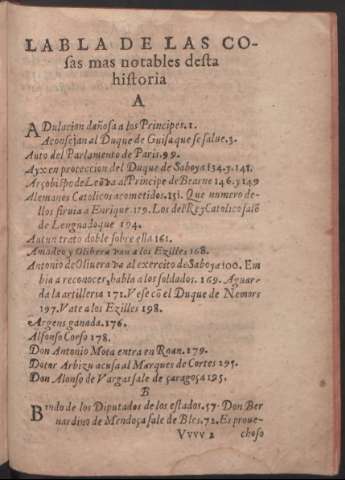 LABLA DE LAS CO-
sas mas notables desta
historia
A
ADulacion dañosa a los Principes.1.
Aconsejan al Duque de Guisa que se salue.3.
Auto del Parlamento de Paris.99.
Ayx en proteccion del Duque de Saboya 134.y.141.
Arçobispo de Leõ va al Principe de Bearne 146.y 149
Alemanes Catolicos acometidos.151. Que numero de-
llos siruia a Enrique.179. Los del Rey Catolico salẽ
de Lenguadoque 194.
Autun trato doble sobre ella 161.
Amadeo y Olibera van a los Ezilles 168.
Antonio de Oliuera va al exercito de Saboya 100. Em
bia a reconocer, habla a los soldados. 169. Aguar-
da la artilleria 171. Vese cõ el Duque de Nemors
197. Vate a los Ezilles 198.
Argens ganada.176.
Alfonso Corso 178.
Don Antonio Mota entra en Roan.179.
Dotor Arbizu acusa al Marques de Cortes 195.
Don Alonso de Vargas sale de çaragoça 195.
B
Bando de los Diputados de los estados.57. Don Ber
nardino de Mendoça sale de Bles.72. Es proue-
Vvvv 2 choso